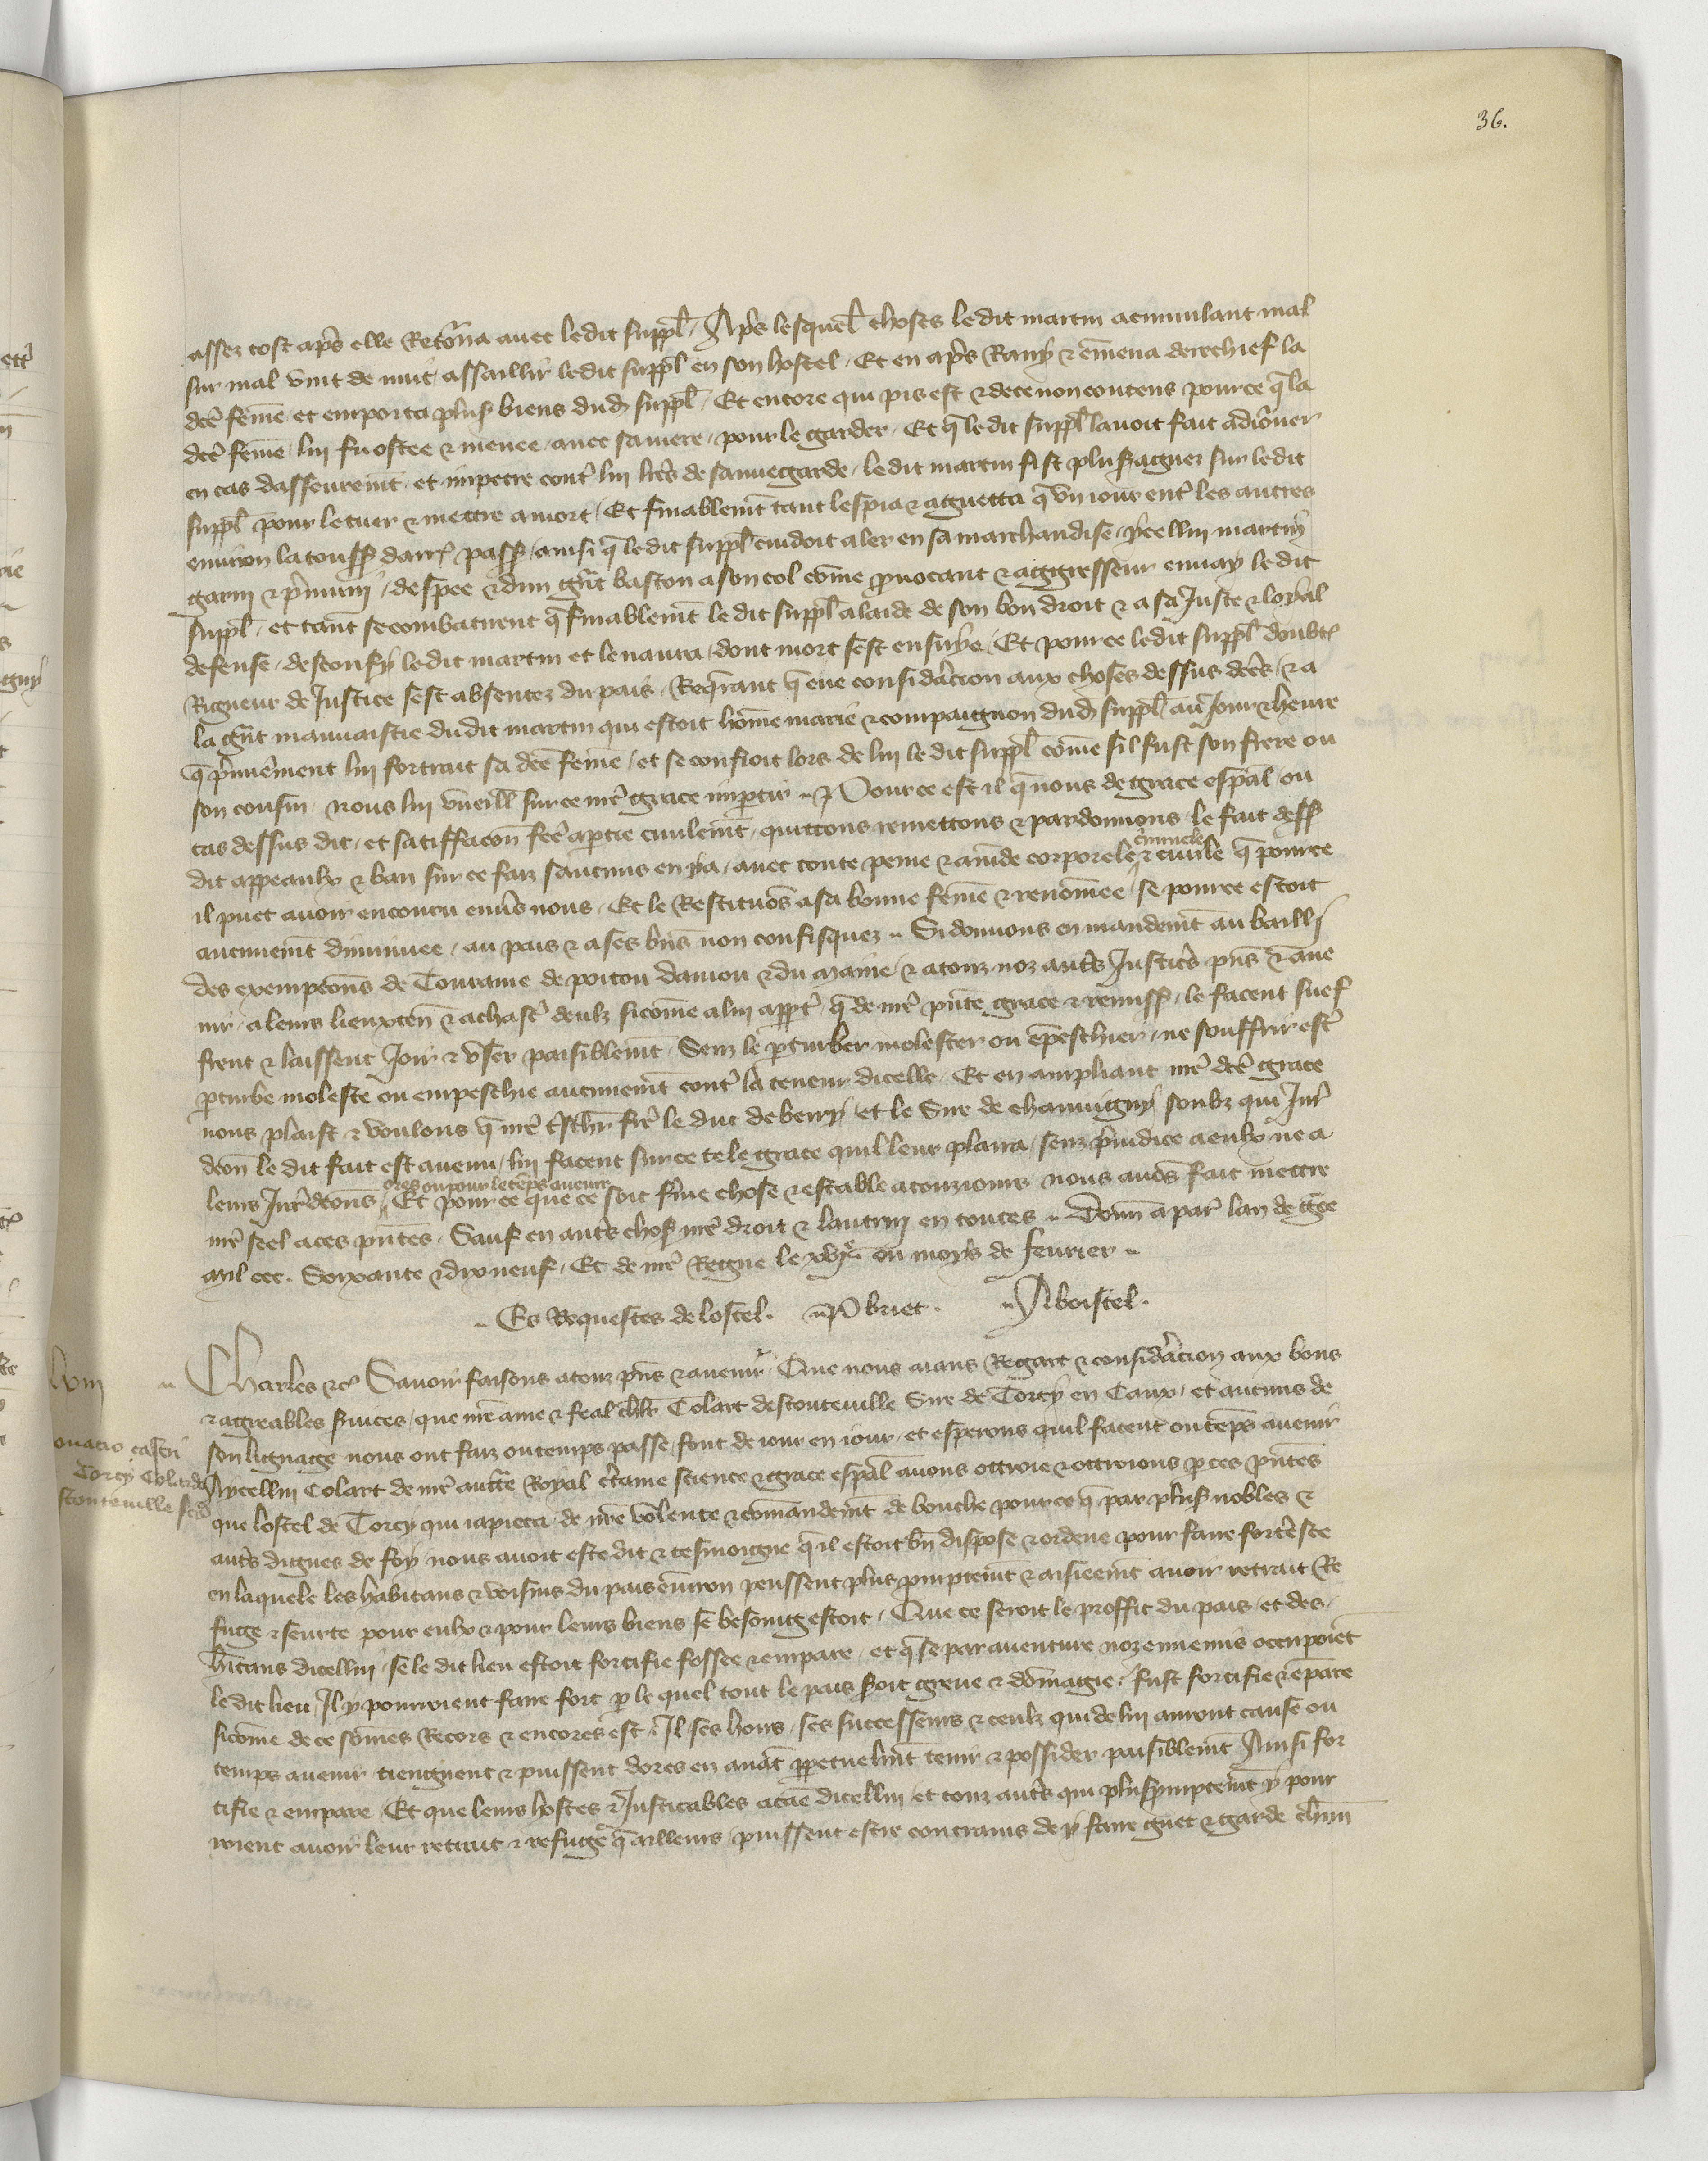 36.
assez tost apr̃s elle Retõna auec ledit suppl̃. Apr̃s lesquel̃ choses ledit martin acumulant mal
sur mal vint de nuit assaillir ledit suppl̃ en son hostel. Et en apr̃s Rauy & em̃ena derechief la
dc̃e fem̃e et emporta plus̃ biens dud̃ suppl̃. Et encore qui pis est & de ce non contens pource q̃ la
dc̃e fem̃e lui fu ostee & menee auec sa mere pour le garder. Et q̃ ledit suppl̃ lauoit fait adiõner
en cas dasseurem̃t et impetre cont̃ lui lr̃es de sauuegarde, ledit martin fist plus̃ aguez sur ledit
suppl̃ pour le tuer & mettre a mort. Et finablem̃t tant lespia & aguetta q̃ vn iour ent̃ les autres
enuiron la touss̃ darr̃ pass̃ ainsi q̃ ledit suppl̃ cuidoit aler en sa marchandise, ycellui martin
garni & p̃muni, despee & dun gr̃t baston a son col com̃e p̃uocant & aggresseur enuay ledit
suppl̃ et tant se combatirent q̃ finablem̃t ledit suppl̃ a laide de son bon droit & a sa Juste & loyal
defense, desconfy ledit martin et le naura, dont mort sest ensuye. Et pource ledit suppl̃ doubt̃
Rigueur de Justice sest absentez du pais. Req̃rant q̃ eue considãcion aux choses dessus dc̃es, & a
la gr̃t mauuaistie dudit martin qui estoit hom̃e marie & compaignon dud̃ suppl̃ au Jour & heure
q̃ p̃mierement lui fortrait sa dc̃e fem̃e, et se confioit lors de lui ledit suppl̃ com̃e sil fust son frere ou
son cousin. Nous lui vueill̃ sur ce nr̃e grace imp̃tir. Pource est il q̃ nous de grace esp̃al ou
cas dessus dit, et satiffacõn fc̃e a ptie ciuilem̃t, quittons remettons & pardonnons le fait dess̃
criminele
dit appeaulx & ban sur ce faiz saucuns en y a, auec toute peine & am̃de corporele & ciuile q̃ pource
il puet auoir encouru enũs nous. Et le Restituõs a sa bonne fem̃e & renom̃ee, se pource estoit
aucunem̃t diminuee, au pais & a ses bñs non confisquez. Si donnons en mandem̃t au bailli
des exempcõns de Touraine de poitou daniou & du maine, & a touz noz aut̃s Justic̃s pñs & aue
nir a leurs lieuxteñ & a chasc̃ deulx si com̃e a lui app̃t, q̃ de nr̃e pñte grace & remiss̃ le facent suef
frent & laissent Joir & vser paisiblem̃t. Senz le p̃turber molester ou em̃peschier, ne souffrir est̃
p̃turbe moleste ou empeschie aucunem̃t cont̃ la teneur dicelle. Et en ampliant nr̃e dc̃e grace
nous plaist & voulons q̃ nr̃e t̃schr̃ fr̃e le duc de berry, et le Sire de chauuigny soubz qui Jur̃
dcõn le dit fait est auenu, lui facent sur ce tele grace quil leur plaira, senz p̃iudice a eulx ne a
ores ou pour le tẽps auenir
leurs Jur̃dcõns, Et pource que ce soit fẽme chose & estable a touziours nous auõs fait mettre
nr̃e seel a ces pñtes. Sauf en aut̃s chos̃ nr̃e droit & lautrui en toutes. Donñ a par̃ lan de gr̃ce
mil ccc. Soixante & dixneuf. Et de nr̃e Regne le xvjᵉ ou moys de feurier.
Es Requestes de lostel. P briet. A boistel.
lviij
Charles &c̃ Sauoir faisons a touz pñs & auenir. Que nous aians Regart & considãcion aux bons
& aggreables s̃uices, que nr̃e ame & feal chlr̃ Colart destouteuille Sire de Torcy en Caux, et aucuns de
son lignage nous ont faiz ou temps passe, font de iour en iour, et esperons quil facent ou tẽps auenir
Torcy Colardo
Aycellui Colart de nr̃e auct̃e Royal c̃taine science & grace esp̃al auons ottroie & ottroions p ces pñtes
que lostel de Torcy qui ia pieca de nr̃e volente & com̃andem̃t de bouche pource q̃ par plus̃ nobles &
aut̃s dignes de foy nous auoit este dit & tesmoigne q̃ il estoit bñ dispose & ordene pour faire fort̃esce
en laquele les habitans & voisins du pais enuiron peussent plus promptem̃t & aisieem̃t auoir retrait Re
fuge & seurte pour eulx & pour leurs biens se besoing estoit. Que ce seroit le proffit du pais et des
hitans dicellui, se le dit lieu estoit fortifie fosse & empare, et q̃ se par auenture noz ennemis occupoiẽt
le dit lieu, Il y pourroient faire fort p le quel tout le pais s̃oit greue & dom̃agie. fust fortifie & em̃pare
si com̃e de ce som̃es Recors & encores est. Il ses hoirs, ses successeurs & ceulx qui de lui auront cause ou
temps auenir tiengnent & puissent dores en auãt perpetuelm̃t tenir & possider paisiblem̃t Ainsi for
tifie & empare. Et que leurs hostes & Justicables a cãe dicellui et touz aut̃s qui plus promptem̃t y pour
roient auoir leur retrait & refuge q̃ ailleurs, puissent estre contrains de y faire guet & garde chũn